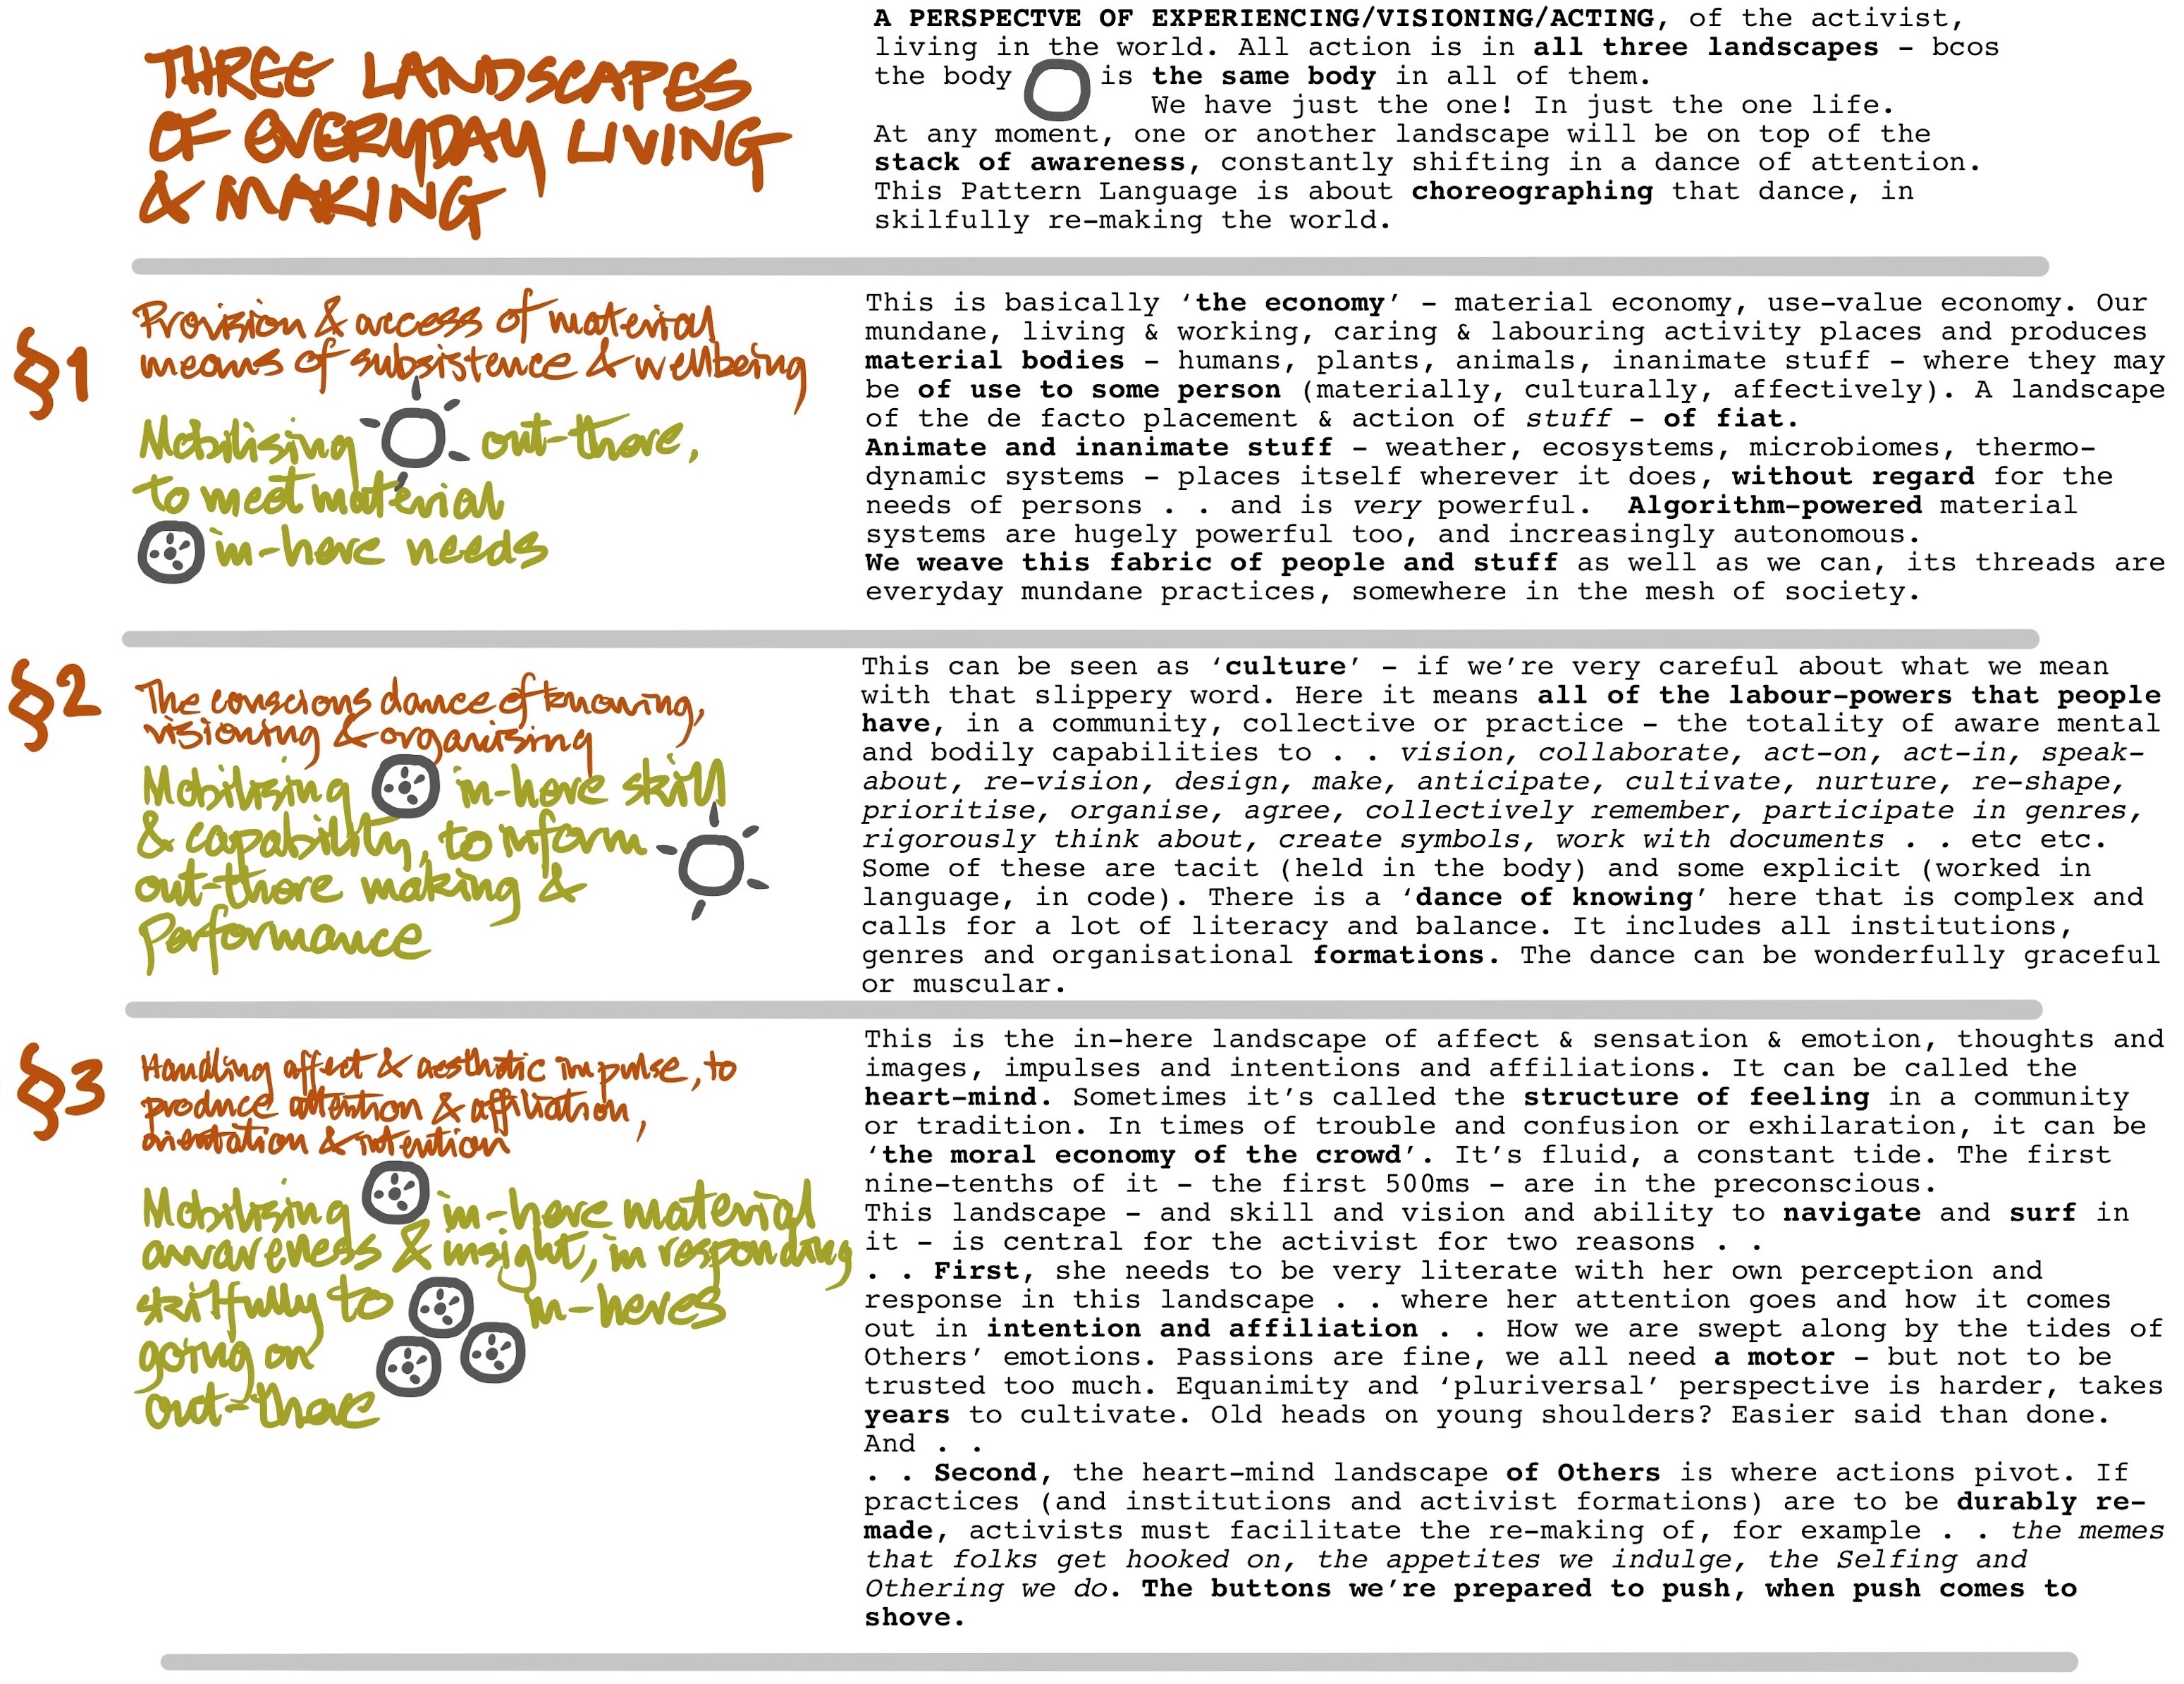 THREE LANDSCAPES
OF EVERYDAY LIVING
& MAKING
A PERSPECTVE OF EXPERIENCING/VISIONING/ACTING, of the activist,
living in the world. All action is in all three landscapes – bcos
the body is the same body in all of them.
We have just the one! In just the one life.
At any moment, one or another landscape will be on top of the
stack of awareness, constantly shifting in a dance of attention.
This Pattern Language is about choreographing that dance, in
skilfully re-making the world.
§1
Provision & access of material
means of subsistence & wellbeing
Mobilising out-there,
to meet material
in-here needs
This is basically ‘the economy’ – material economy, use-value economy. Our
mundane, living & working, caring & labouring activity places and produces
material bodies – humans, plants, animals, inanimate stuff – where they may
be of use to some person (materially, culturally, affectively). A landscape
of the de facto placement & action of stuff – of fiat.
Animate and inanimate stuff – weather, ecosystems, microbiomes, thermo-
dynamic systems – places itself wherever it does, without regard for the
needs of persons . . and is very powerful. Algorithm-powered material
systems are hugely powerful too, and increasingly autonomous.
We weave this fabric of people and stuff as well as we can, its threads are
everyday mundane practices, somewhere in the mesh of society.
§2
The conscious dance of knowing,
visioning & organising
Mobilising in-here skill
& capability, to inform
out-there making &
Performance
This can be seen as ‘culture’ – if we’re very careful about what we mean
with that slippery word. Here it means all of the labour-powers that people
have, in a community, collective or practice – the totality of aware mental
and bodily capabilities to . . vision, collaborate, act-on, act-in, speak-
about, re-vision, design, make, anticipate, cultivate, nurture, re-shape,
prioritise, organise, agree, collectively remember, participate in genres,
rigorously think about, create symbols, work with documents . . etc etc.
Some of these are tacit (held in the body) and some explicit (worked in
language, in code). There is a ‘dance of knowing’ here that is complex and
calls for a lot of literacy and balance. It includes all institutions,
genres and organisational formations. The dance can be wonderfully graceful
or muscular.
§3
Handling affect & aesthetic impulse, to
produce attention & affiliation,
orientation & intention
Mobilising in-here material
awareness & insight, in responding
skilfully to in-heres
going on
out-there
This is the in-here landscape of affect & sensation & emotion, thoughts and
images, impulses and intentions and affiliations. It can be called the
heart-mind. Sometimes it’s called the structure of feeling in a community
or tradition. In times of trouble and confusion or exhilaration, it can be
‘the moral economy of the crowd’. It’s fluid, a constant tide. The first
nine-tenths of it – the first 500ms – are in the preconscious.
This landscape – and skill and vision and ability to navigate and surf in
it – is central for the activist for two reasons . .
. . First, she needs to be very literate with her own perception and
response in this landscape . . where her attention goes and how it comes
out in intention and affiliation . . How we are swept along by the tides of
Others’ emotions. Passions are fine, we all need a motor – but not to be
trusted too much. Equanimity and ‘pluriversal’ perspective is harder, takes
years to cultivate. Old heads on young shoulders? Easier said than done.
And . .
. . Second, the heart-mind landscape of Others is where actions pivot. If
practices (and institutions and activist formations) are to be durably re-
made, activists must facilitate the re-making of, for example . . the memes
that folks get hooked on, the appetites we indulge, the Selfing and
Othering we do. The buttons we’re prepared to push, when push comes to
shove.